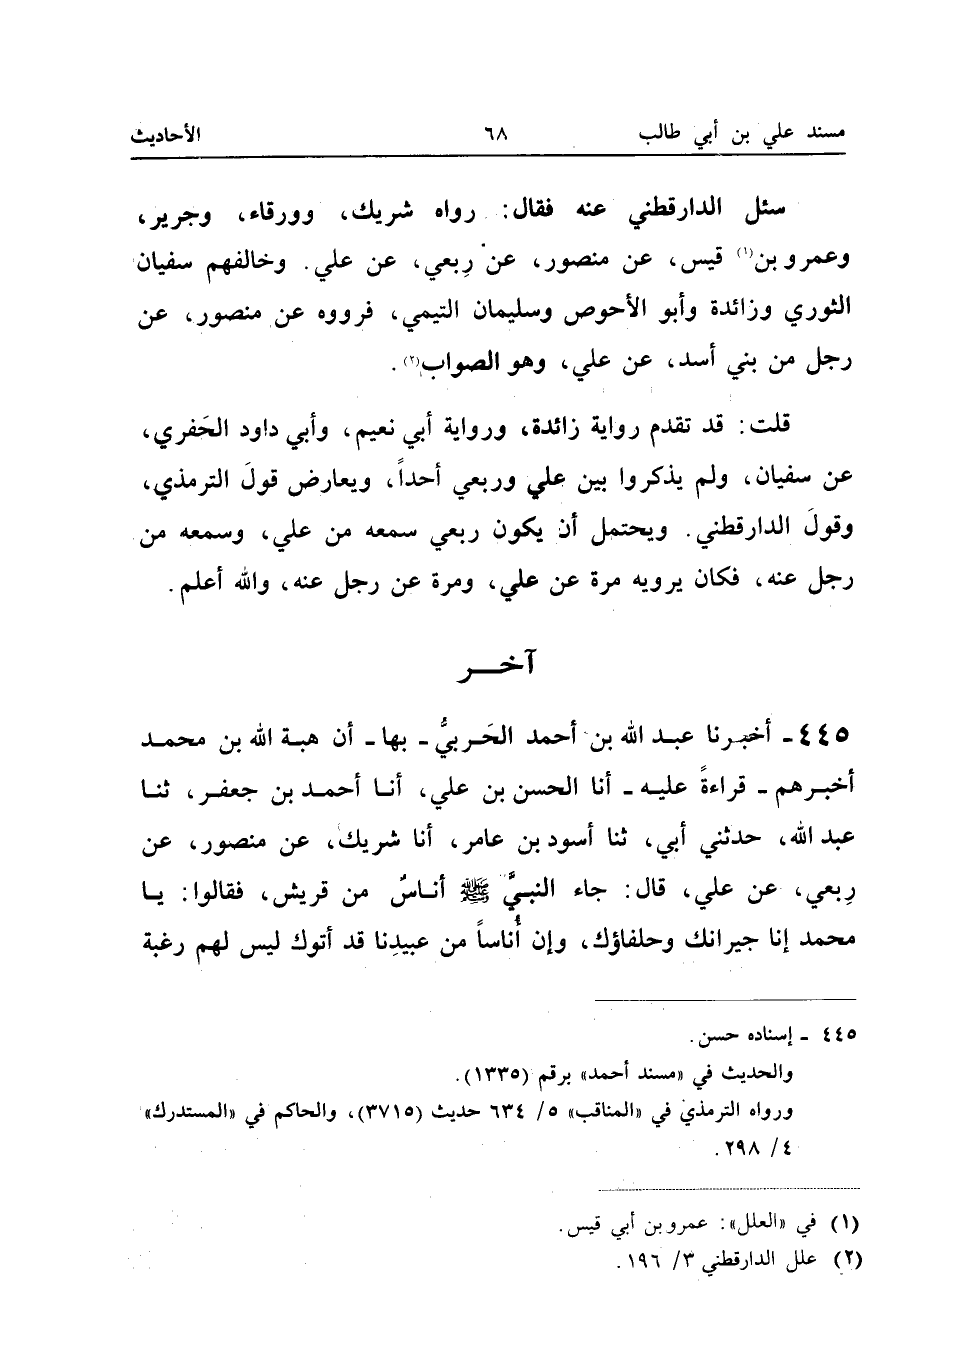 مسند علي بن أبي طالب ٦٨ الأحاديث
سئل الدارقطني عنه فقال: رواه شريك، وورقاء، وجرير،
وعمرو بن(١) قيس، عن منصور، عن رِبعي، عن علي. وخالفهم سفيان
الثوري وزائدة وأبو الأحوص وسليمان التيمي، فرووه عن منصور، عن
رجل من بني أسد، عن علي، وهو الصواب(٢).
قلت: قد تقدم رواية زائدة، ورواية أبي نعيم، وأبي داود الحَفري،
عن سفيان، ولم يذكروا بين علي وربعي أحداً، ويعارض قولَ الترمذي،
وقولَ الدارقطني. ويحتمل أن يكون ربعي سمعه من علي، وسمعه من
رجل عنه، فكان يرويه مرة عن علي، ومرة عن رجل عنه، والله أعلم.
آخـــر
٤٤٥ ـ أخبرنا عبد الله بن أحمد الحَربيُّ ـ بها ـ أن هبة الله بن محمد
أخبرهم ـ قراءةً عليه ـ أنا الحسن بن علي، أنا أحمد بن جعفر، ثنا
عبد الله، حدثني أبي، ثنا أسود بن عامر، أنا شريك، عن منصور، عن
رِبعي، عن علي، قال: جاء النبيَّ ﷺ أناسٌ من قريش، فقالوا: يا
محمد إنا جيرانك وحلفاؤك، وإن أُناساً من عبيدِنا قد أتوك ليس لهم رغبة
٤٤٥ ـ إسناده حسن.
والحديث في «مسند أحمد» برقم (١٣٣٥).
ورواه الترمذي في «المناقب» ٥/ ٦٣٤ حديث (٣٧١٥)، والحاكم في «المستدرك»
٤/ ٢٩٨.
(١) في «العلل»: عمرو بن أبي قيس.
(٢) علل الدارقطني ٣/ ١٩٦.